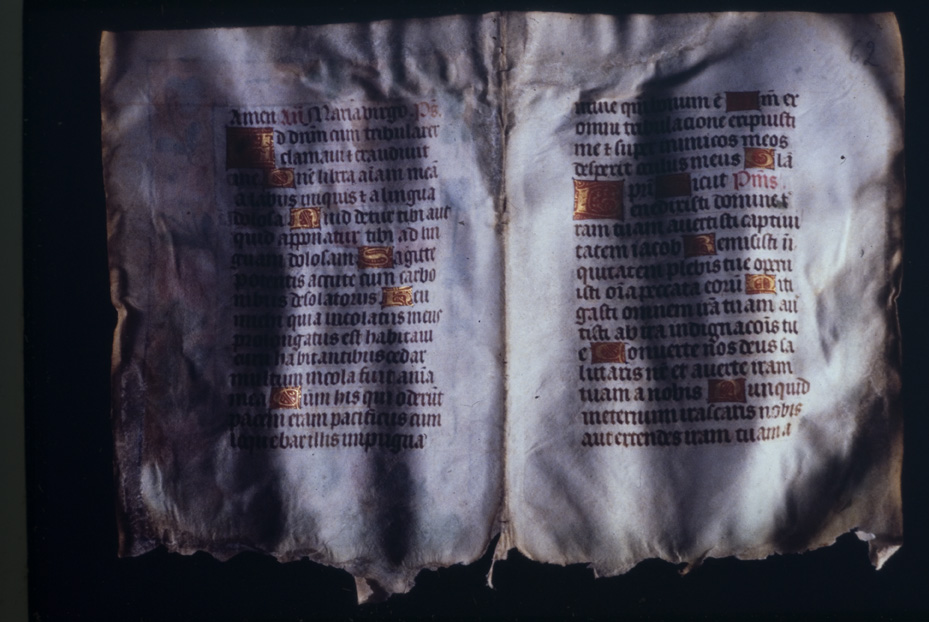 Amen An̄ Maria virgo. Ps.
Ad dn̄m cum tribularer
clamavi ⁊ exaudivit
me Dn̄e libera aīam meā
a labiis iniquis ⁊ a lingua
dolosa Quid detur tibi aut
quid apponatur tibi ad lin
guam dolosam Sagitte
potentis acute cum carbo
nibus desolatoriis Heu
michi quia incolatus meus
prolongatus est habitavi
cum habitantibus cedar
multum incola fuit aīa
mea Cum his qui oderūt
pacem eram pacificus cum
loquebar illis impugna
62
mine qm̄ bonum ē m ex
omni tribulacione eripuisti
me ⁊ super inimicos meos
despexit oculus meus Gl̄a
Ps̄us
Benedixisti domine t
ram tuam avertisti captivi
tatem iacob Remisisti īi
quitatem plebis tue operui
isti oīa peccata eorū Miti
gasti omnem irā tuam av̄
tisti ab ira indignacoīs tu
e Converte nos deus sa
lutaris nr̄ et averte iram
tuam a nobis Nunquid
ineternum irascaris nobis
aut extendes iram tuam a